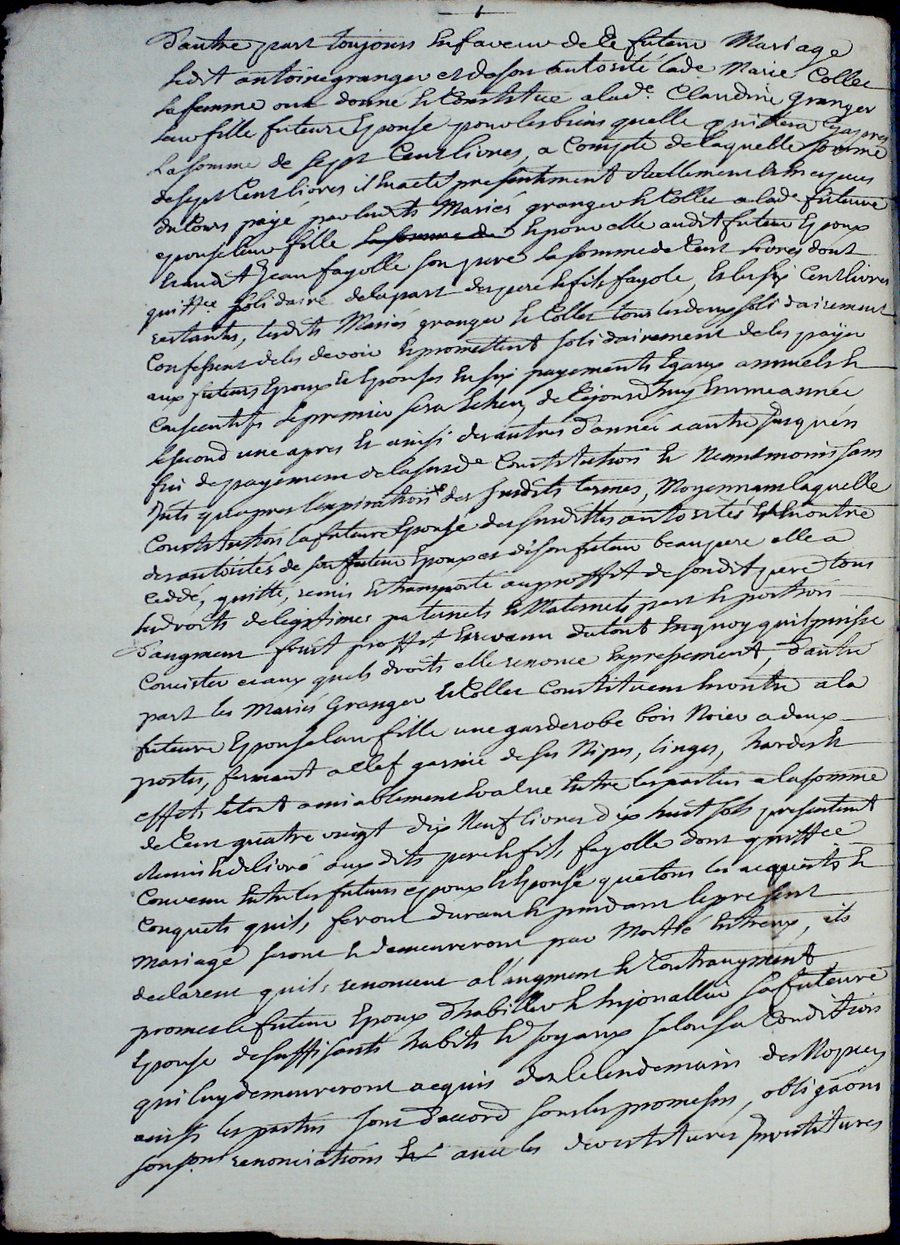 D'autre part toujours En faveur de Ce futeur Mariage
Ledit antoine granger et de son autorité lade Marie Collet
Sa femme ont donné Et Constitué a lade. Claudine granger
Leur fille future Epouse pour les biens quelle quittera cy apres
La somme de Sept Cent livres, a Compte de laquelle somme
de sept Cent livres il luy a eté presentement Reellement Et En especes
du Cours payé par lesdits Mariés granger Et Collet a lade future
epouse leur fille la somme de Et pour elle audit futeur Epoux
Et audit Jean fayolle son pere la somme de Cent livres dont
quittce. Solidaire de la part des pere Et fils fayole, Et les six Cent livres
restantes, lesdits Mariés granger Et Collet tous les deux solidairement
Confessent de les devoir Et promettent solidairement de les payer
aux futeurs Epoux Et Epouses En six payements Egaux annuels Et
Consecutifs le premier sera Echeu, de Cejourd'huy En une année
le second une apres Et ainsi des autres d'année a autre Jusqu'en
fin de payement de la susde Constitution Et Neantmoins sans
Jnts. qu'apres l'expiration des susdits termes, Moyennant laquelle
Constitution la future Epouse des susdittes autorités Et En outre
des autorités de son futeur Epoux et de son futeur beaupere elle a
Ceddé, quitté, remis Et transporté au proffit de sondit pere tous
ses droits de legitimes paternels Et Maternels part Et portion
D'augment fruit proffit Et revenu du tout En quoy quil puisse
Concister et aux quels droits elle renonce Expressement, D'autre
part les Mariés Granger Et Collet Constituent En outre a la
future Epouse leur fille une garderobe bois Noier a deux
portes, fermant a Clef garnie de ses Nipes, linges, hardes Et
effets le tout amiablement Evalué Entre les parties a la somme
de Cent quatre vingt dix Neuf livres dix huit sols presentent
Remis Et delivré auxdits pere Et fils fayolle dont quittce
Convenu Entre les futeurs epoux Et Epouse que tous les acquets Et
Conquets quils, feront durant Et pendant le present
Mariage seront Et demeureront par Moitié Entreux, ils
declarent quils renoncent a l'augment Et Contraugment
promet le futeur Epoux d'habiller Et Enjoualler sa future
Epouse de suffisants habits Et Joyaux selon sa Condition
qui luy demeureront acquis des le lendemain des Nopces
ainsi les parties sont d'accord sous les promesses, obligaons
renonciations Et avec les devestitures Jnvestitures